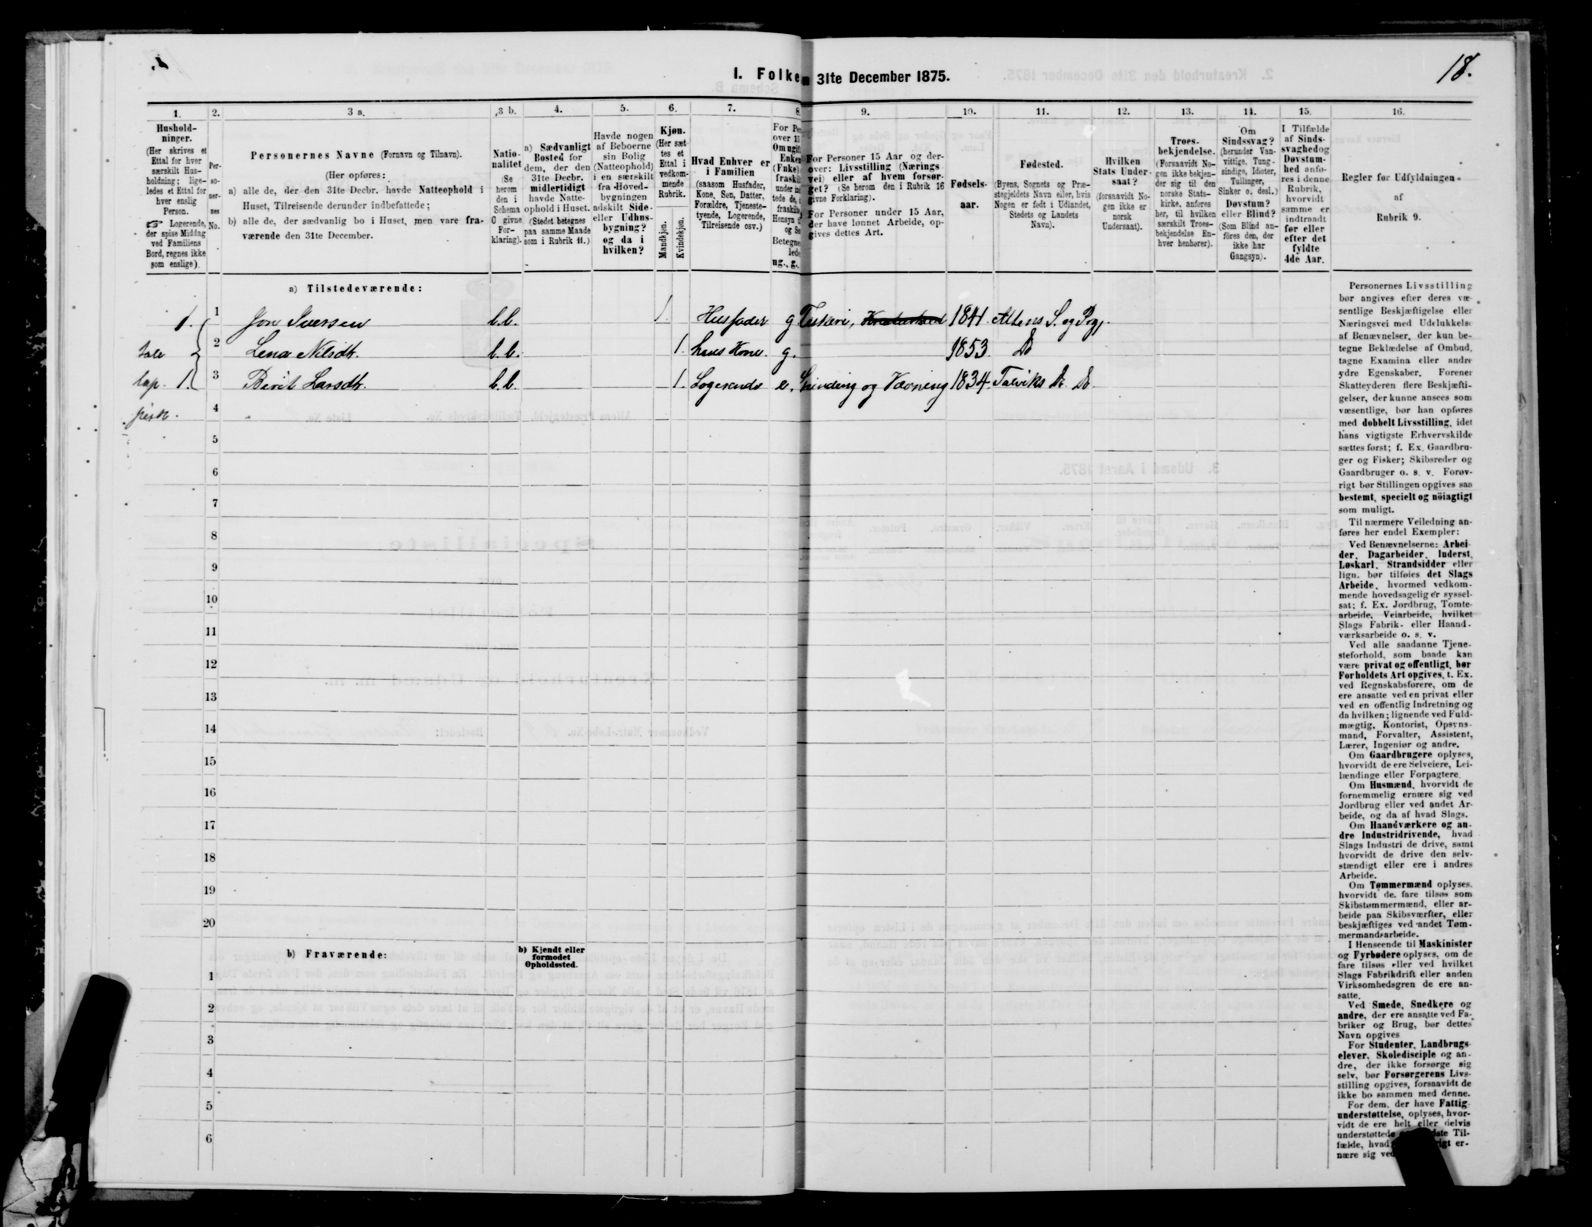 18.
I. Folke m 31te December 1875.
1.
2.
3 a.
3 b.
4.
5.
6.
7.
8.
9.
10.
11.
12.
13.
14.
15.
16.
Hushold-
ninger.
(Her skrives et
Ettal for hver
særskilt Hus-
holdning; lige-
ledes et Ettal for
hver enslig
Person.
☞ Logerende,
der spise Middag
ved Familiens
Bord, regnes ikke
som enslige).
Per-
so-
ner-
nes
No.
Personernes Navne (Fornavn og Tilnavn).
(Her opføres:
a) alle de, der den 31te Decbr. havde Natteophold i
Huset, Tilreisende derunder indbefattede;
b) alle de, der sædvanlig bo i Huset, men vare fra-
værende den 31te December.
Natio-
nalitet
(Se
herom
den i
Schema
O givne
For-
klaring).
a) Sædvanligt
Bosted for
dem, der den
31te Decbr.
midlertidigt
havde Natte-
ophold i Huset.
(Stedet betegnes
paa samme Maade
som i Rubrik 11.)
Havde nogen
af Beboerne
sin Bolig
(Natteophold)
i en særskilt
fra Hoved-
bygningen
adskilt Side-
eller Udhus-
bygning?
og da i
hvilken?
Kjøn.
(Her sæt-
tes et
Ettal i
vedkom-
mende
Rubrik.
Mandkjøn.
Kvindekjøn.
Hvad Enhver er
i Familien
(saasom Husfader,
Kone, Søn, Datter,
Forældre, Tjeneste-
tyende, Logerende,
Tilreisende osv.)
For Pe
over 1
Om ugi
Enke
(Enke)
fraski
under
tede
fraski
Hensyn
og Se
Betegne
lede
ug., g.,
For Personer 15 Aar og der-
over: Livsstilling (Nærings-
vei) eller af hvem forsør-
get? (Se herom den i Rubrik 16
givne Forklaring).
For Personer under 15 Aar,
der have lønnet Arbeide, op-
gives dettes Art.
Fødsels-
aar.
Fødested.
(Byens, Sognets og Præ-
stegjeldets Navn eller, hvis
Nogen er født i Udlandet,
Stedets og Landets
Navn).
Hvilken
Stats Under-
saat?
(forsaavidt No-
gen ikke er
norsk
Undersaat).
Troes-
bekjendelse.
(Forsaavidt No-
gen ikke bekjen-
der sig til den
norske Stats-
kirke, anføres
her, til hvilken
særskilt Troes-
bekjendelse En-
hver henhører).
Om
Sindssvag?
(herunder Van-
vittige, Tung-
sindige, Idioter,
Tullinger,
Sinker o. desl.)
Døvstum?
eller Blind?
(Som Blind an-
føres den, der
ikke har
Gangsyn).
I Tilfælde
af Sinds-
svaghed og
Døvstum-
hed anfø-
res i denne
Rubrik,
hvorvidt
samme er
indtraadt
før eller
efter det
fyldte
4de Aar.
Regler for Udfyldningen
af
Rubrik 9.
a) Tilstedeværende:
1. 1 Jon Iversen b.b. 1. Husfader g Fiskeri, 1841 Altens S. og Pgj.
2 Lena Nilsdt. b.b. 1. hans Kone g. 1853 Do
1. 3 Berit Larsdt. b.b. 1. Logerende e. Spinding og Vævning 1834 Talviks Do. Do.
tale
lap.
finsk.
4
5
6
7
8
9
10
11
12
13
14
15
16
17
18
19
20
b) Fraværende:
b) Kjendt eller
formodet
Opholdssted.
1
2
3
4
5
6
Personernes Livsstilling
bør angives efter deres væ-
sentlige Beskjæftigelse eller
Næringsvei med Udelukkelse
af Benævnelser, der kun be-
tegne Beklædelse af Ombud,
tagne Examina eller andre
ydre Egenskaber. Forener
Skatteyderen flere Beskjæfti-
gelser, der kunne ansees som
væsentlige, bør han opføres
med dobbelt Livsstilling, idet
hans vigtigste Erhvervskilde
sættes først; f. Ex. Gaardbru-
ger og Fisker; Skibsreder og
Gaardbruger o. s. v. Forøv-
rigt bør Stillingen opgives saa
bestemt, specielt og nöiagtigt
som muligt.
Til nærmere Veiledning an-
føres her endel Exempler:
Ved Benævnelserne: Arbei-
der, Dagarbeider, Inderst,
Løskarl, Strandsidder eller
lign. bør tilføies det Slags
Arbeide, hvormed vedkom-
mende hovedsagelig er syssel-
sat; f. Ex. Jordbrug, Tomte-
arbeide, Veiarbeide, hvilket
Slags Fabrik- eller Haand-
værksarbeide o. s. v.
Ved alle saadanne Tjene-
steforhold, som baade kan
være privat og offentligt, bør
Forholdets Art opgives, t. Ex.
ved Regnskabsførere, om de
ere ansatte ved en privat eller
ved en offentlig Indretning og
da hvilken; lignende ved Fuld-
mægtig, Kontorist, Opsyns-
mand, Forvalter, Assistent,
Lærer, Ingeniør og andre.
Om Gaardbrugere oplyses,
hvorvidt de ere Selveiere, Lei-
lændinge eller Forpagtere.
Om Husmænd, hvorvidt de
fornemmelig ernære sig ved
Jordbrug eller ved andet Ar-
beide, og da af hvad Slags.
Om Haandværkere og an-
dre Industridrivende, hvad
Slags Industri de drive, samt
hvorvidt de drive den selv-
stændigt eller ere i andres
Arbeide.
Om Tømmermænd oplyses,
hvorvidt de fare tilsøs som
Skibstømmermænd, eller ar-
beide paa Skibsværfter, eller
beskjæftiges ved andet Tøm-
mermandsarbeide.
I Henseende til Maskinister
og Fyrbødere oplyses, om de
fare tilsøs eller ved hvilket
Slags Fabrikdrift eller anden
Virksomhedsgren de ere an-
satte.
Ved Smede, Snedkere og
andre, der ere ansatte ved Fa-
briker og Brug, bør dettes
Navn opgives
For Studenter, Landbrugs-
elever, Skoledisciple og an-
dre, der ikke forsørge sig
selv, bør Forsørgerens Livs-
stilling opgives, forsaavidt de
ikke bo sammen med denne.
For dem, der have Fattig-
understøttelse, oplyses, hvor-
vidt de ere helt eller delvis
understøttede Til-
fælde, hvad er-
nære sig ved